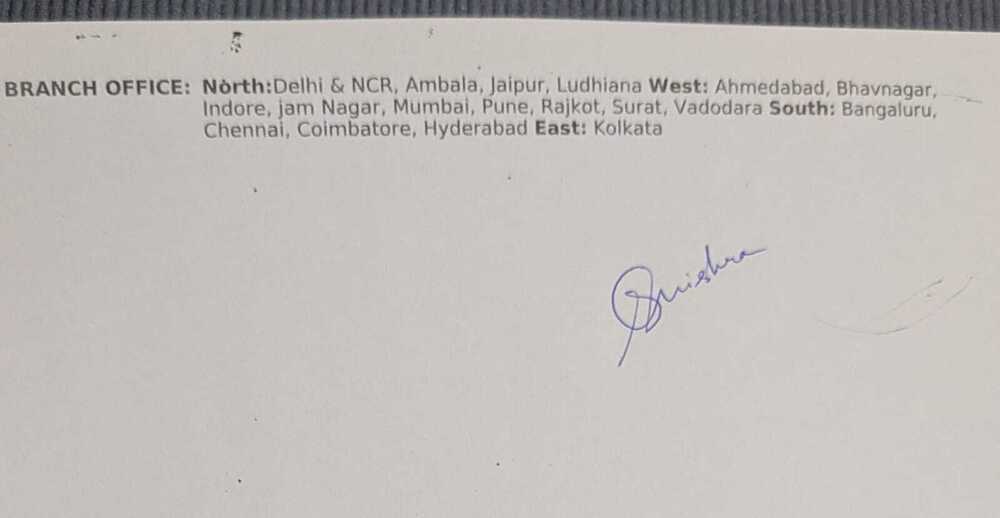 BRANCH OFFICE: North:Delhi & NCR, Ambala, Jaipur, Ludhiana West: Ahmedabad, Bhavnagar,
Indore, jam Nagar, Mumbai, Pune, Rajkot, Surat, Vadodara South: Bangaluru,
Chennai, Coimbatore, Hyderabad East: Kolkata